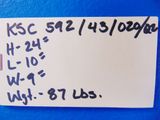 KSC 592/43/020/02
H-24"
L-10"
W-9"
Wgt.- 87 Lbs.